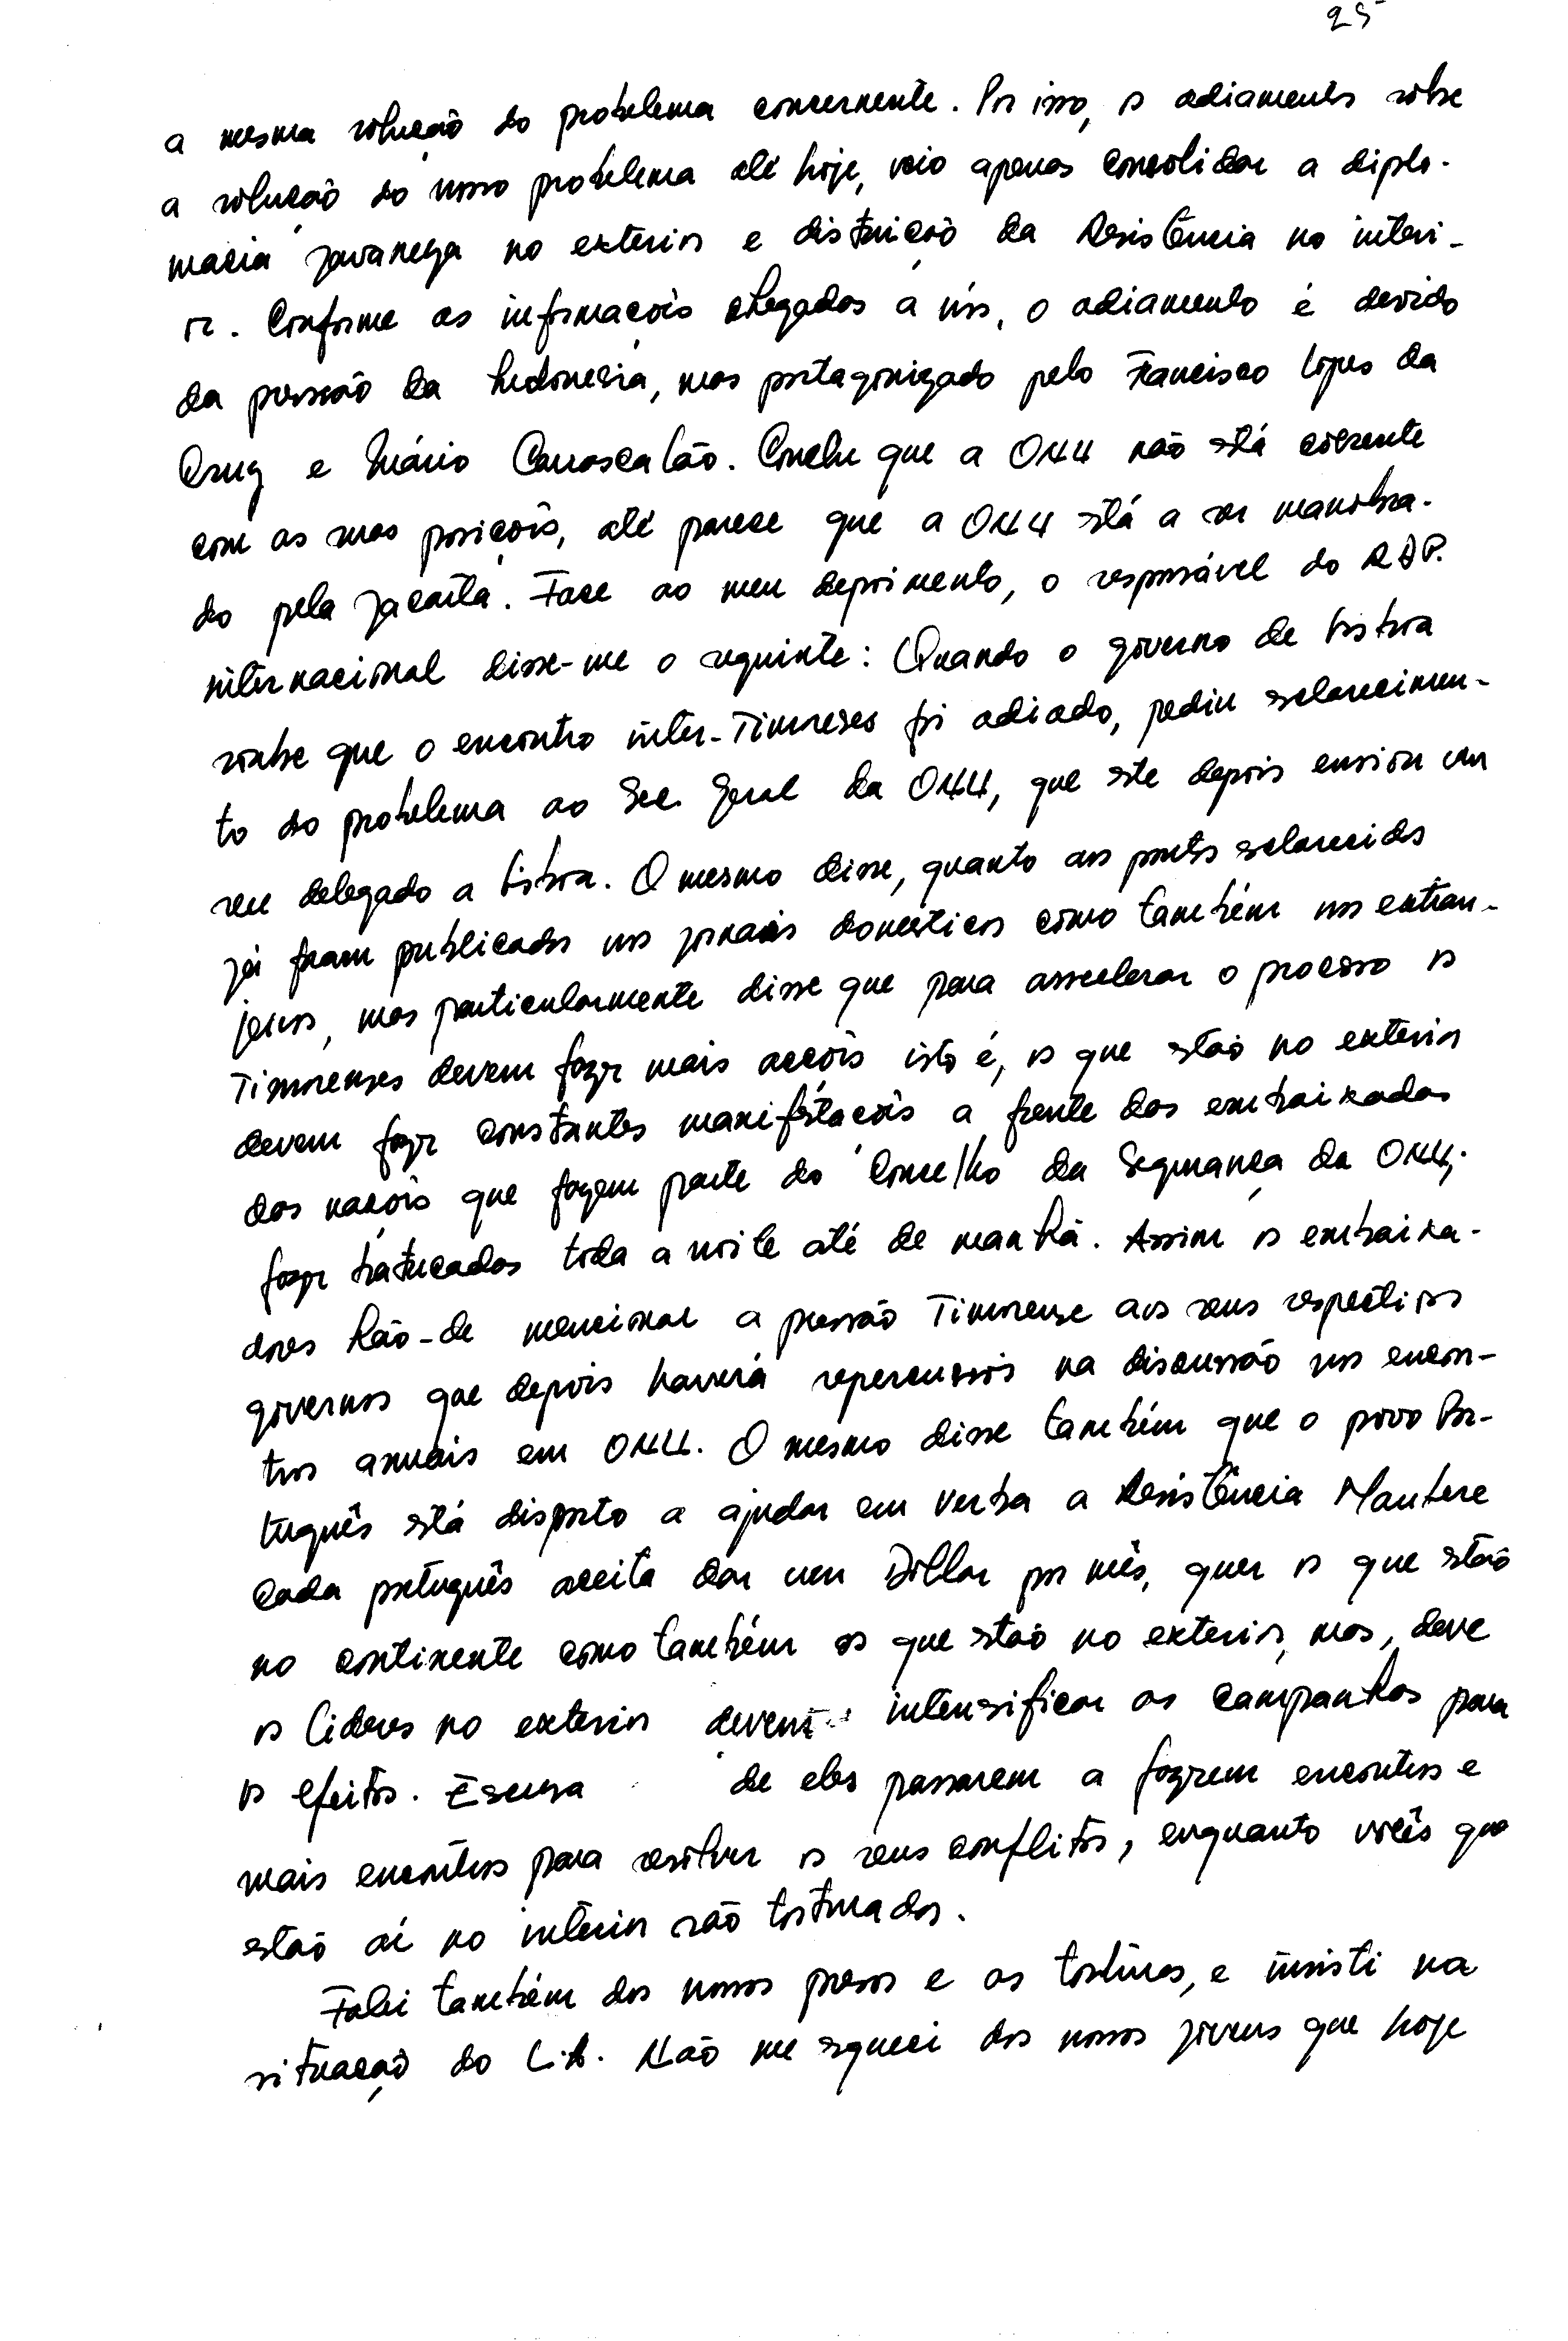 25
a mesma solução do problema concernente. Por isso, os adiamentos sobre
a solução do nosso problema até hoje, veio apenas consolidar a diplo-
macia javaneza no exterior e distruição da Resistência no interi-
or. Conforme as informações chegadas a nós, o adiamento é devido
da pressão da Indonésia, mas protagonizado pelo Francisco Lopes da
Cruz e Mário Carrascalão. Conclui que a ONU não está coerente
com as suas posições, até parece que a ONU está a ser manobra-
do pela Jacarta. Face ao meu depoimento, o responsável do RDP.
internacional disse-me o seguinte: Quando o governo de Lisboa
soube que o encontro inter-Timoreses foi adiado, pediu esclarecimen-
to do problema ao Sec. Geral da ONU, que este depois enviou um
seu delegado a Lisboa. O mesmo disse, quanto aos pontos esclarecidos
já foram publicados nos jornais domésticos como também nos extran-
jeiros, mas particularmente disse que para asselerar o processo os
Timorenses devem fazer mais acções isto é, os que estão no exterior
devem fazer constantes manifestações a frente das embaixadas
das nações que fazem parte do Concelho da Segurança da ONU,
fazer batucadas toda a noite até de manhã. Assim os embaixa-
dores hão-de mencionar a pressão Timorense aos seus respectivos
governos que depois haverá repercussões na discussão nos encon-
tros anuais em ONU. O mesmo disse também que o povo Por-
tuguês está disposto a ajudar em verba a Resistência Maubere
Cada português aceita dar um Dollar por mês, quer os que estão
no continente como também os que estão no exterior, mas, deve
os líderes no exterior devem intensificar as campanhas para
os efeitos. Escusa de eles passarem a fazerem encontros e
mais encontros para resolver os seus conflitos, enquanto vocês que
estão aí no interior são torturados.
Falei também dos nossos presos e as torturas, e insisti na
situação do L.A. Não me esqueci dos nossos jovens que hoje